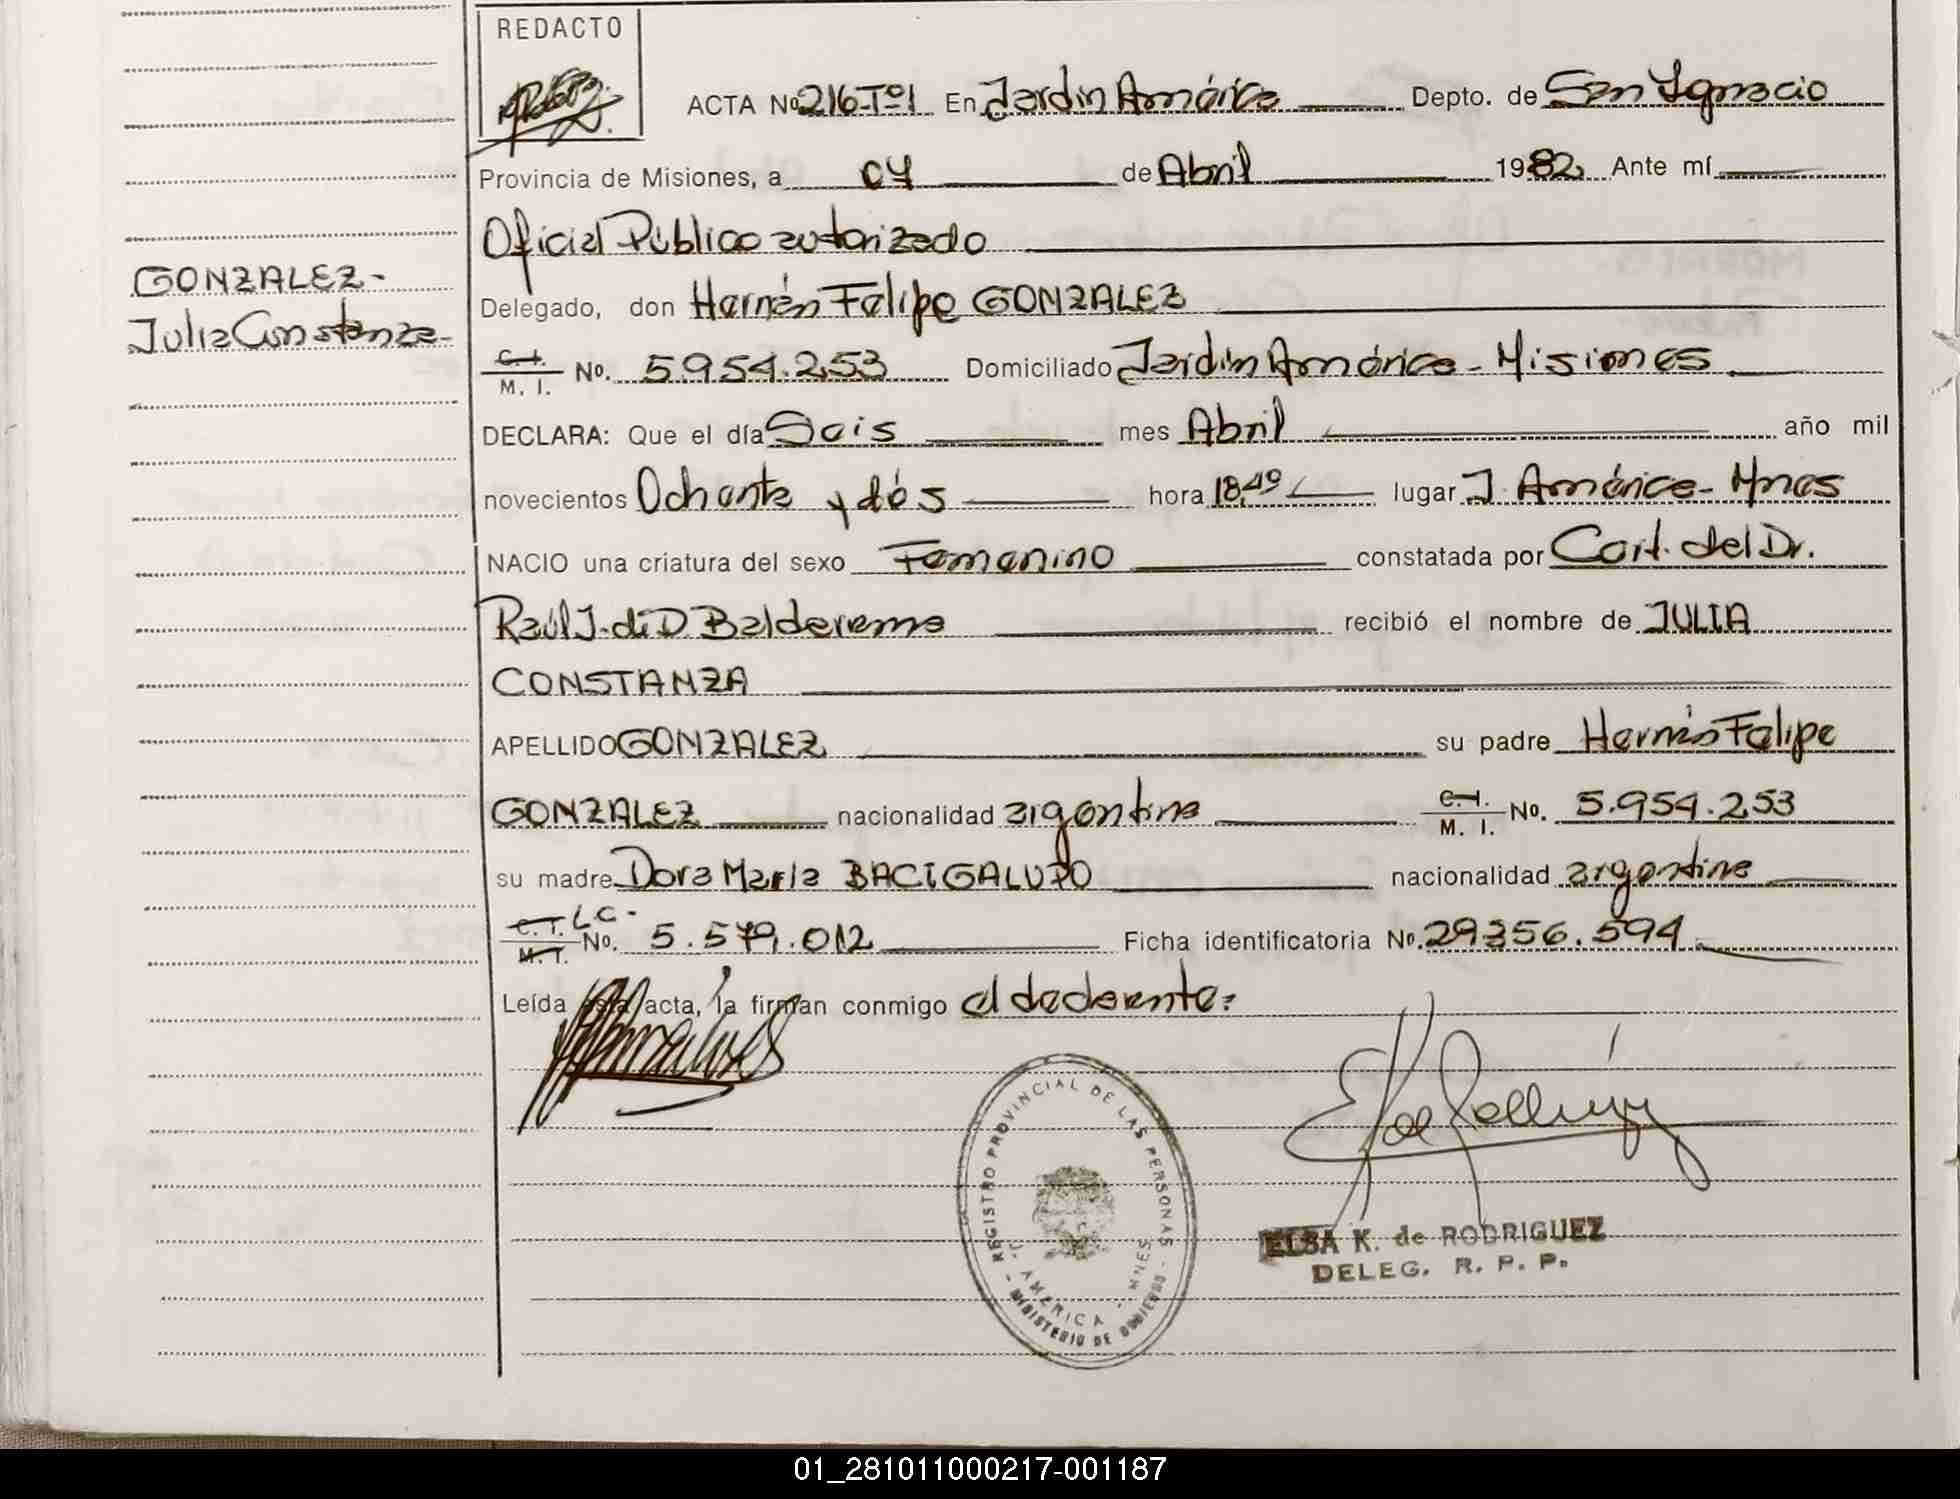 REDACTO
ACTA No 216-Tº1 En Jardin América Depto. de San Ignacio
Provincia de Misiones, a 04 de Abril 1982 Ante mí
Oficial Público autorizado
GONZALEZ-
Julia Constanza-
Delegado, don Hernán Felipe GONZALEZ
C. I. M. I. No. 5954.253 Domiciliado Jardín América - Misiones
DECLARA: Que el día Seis mes Abril año mil
novecientos Ochenta y dós hora 18,49 lugar J. América - Mnes
NACIO una criatura del sexo Femenino constatada por Cert. del Dr.
Raúl J. di D Baldereme recibió el nombre de JULIA
CONSTANZA
APELLIDO GONZALEZ su padre Hernán Felipe
GONZALEZ nacionalidad argentina C. I. M. I. No. 5.954.253
su madre Dora María BACIGALUPO nacionalidad argentina
C. I. L.C- M. I. No. 5.579.012 Ficha identificatoria No. 29356.594
Leída esta acta, la firman conmigo el declarante:
REGISTRO PROVINCIAL DE LAS PERSONAS
J. AMERICA - MNES
- MINISTERIO DE GOBIERNO -
ELSA K. de RODRIGUEZ
DELEG. R. P. P.
01_281011000217-001187